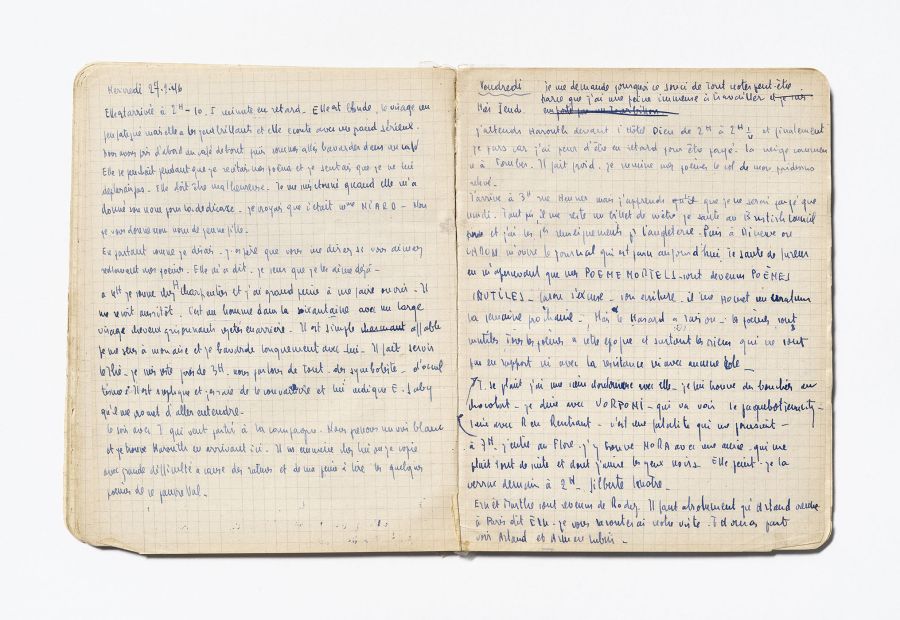 Mercredi 27.2.46
Elle est arrivée à 2H-10. 1 minute en retard. Elle est blonde. le visage un
peu fatigué mais elle a les yeux brillants et elle écoute avec un grand sérieux.
Nous avons pris d'abord un café debout puis sommes allés bavarder dans un café
Elle se penchait pendant que je récitais mes poèmes et je sentais que je ne lui
déplaisais pas. Elle doit être malheureuse. Je me suis étonné quand elle m'a
donné son nom pour la dédicace. je croyais que c'était Mme MIARD - Non
je vous donne mon nom de jeune fille.
En partant comme je disais. j'espère que vous me direz si vous aimez
vraiment mes poèmes. Elle m'a dit. je sens que je les aime déjà -
a 4H je sonne chez Charpentier et j'ai grand peine à me faire ouvrir. Il
me reçoit aussitôt. C'est un homme dans la soixantaine avec un large
visage cheveux grisonnants rejetés en arrière. Il est simple charmant affable
je me sens à mon aise et je bavarde longuement avec lui. Il fait servir
le thé. je suis resté près de 3H. nous parlons de tout. des symbolistes. d'occul
tisme. Il est sceptique et j'essaie de le convaincre et lui indique E. Saby
qu'il me promet d'aller entendre.
le soir avec I qui veut partir à la campagne. Nous prenons un vin blanc
et je trouve Harouth en arrivant ici. Il m'emmène chez lui où je copie
avec grande difficulté à cause des ratures et de ma peine à lire les quelques
poèmes de ce pauvre Val.
Vendredi je me demande pourquoi ce souci de tout noter peut-être
parce que j'ai une peine immense à travailler et je suis
Hier Jeudi. emporté par un tourbillon
J'attends Harouth devant l'Hôtel Dieu de 2H à 2H 1/2 et finalement
je pars car j'ai peur d'être en retard pour être payé. la neige commen
ce à tomber. Il fait froid. je rumine mes poèmes le col de mon pardessus
relevé.
J'arrive à 3H rue mais j'apprends que je ne serai payé que
mardi. Tant pis il me reste un billet de métro je saute au British Council
et j'ai les 1ers renseignements pr l'angleterre. Puis à
m'ouvre le journal qui est paru aujourd'hui. Je saute de fureur
en m'apercevant que mes POEME MORTELS sont devenus POÈMES
INUTILES - s'excuse - son écriture. il me promet un erratum
la semaine prochaine. Mais le Hasard a raison - les poèmes sont
inutiles tous les poèmes à cette époque et surtout les miens qui ne sont
pas en rapport ni avec la résistance ni avec aucune école -
I. se plaît j'ai une scène douloureuse avec elle - je lui trouve des bouchées au
chocolat - je dîne avec VORPONI - qui va voir le paquebot
avec R ou Rembrant - c'est une fatalité qui me poursuit -
à 7H. j'entre au Flore. j'y trouve NORA avec une amie. qui me
plaît tout de suite et dont j'aime les yeux noirs. Elle peint. je la
verrai demain à 2H. Gilberte
Ern et Marthe sont revenus de Rodez. Il faut absolument qu'Artaud rentre
à Paris dit Ern. je vous raconterai notre visite. Tdora part
voir Artaud et Arnere